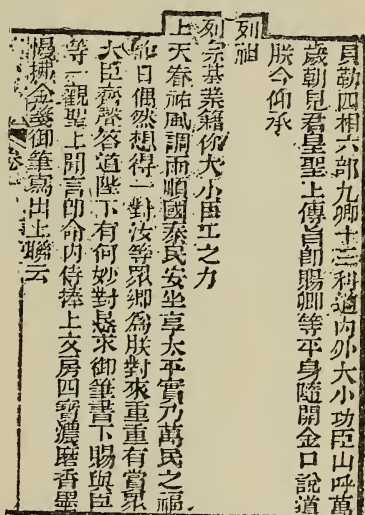 貝勒四相六部九卿十三科道內外大小功臣山呼萬
歲朝見君皇聖上傳旨卽賜卿等平身隨開金口說道
朕今仰承
列祖
列宗基業籍你大小臣工之力
上天眷祐風調雨順國泰民安坐享太平實乃萬民之福
日偶然想得一對汝等眾卿為朕對來重重有賞眾
大臣齊聲答道陛下有何妙對懇求御筆書下賜與臣
等一觀聖上聞言卽命內侍捧上文房四寶濃磨香墨
拂金箋御筆寫出上聯云